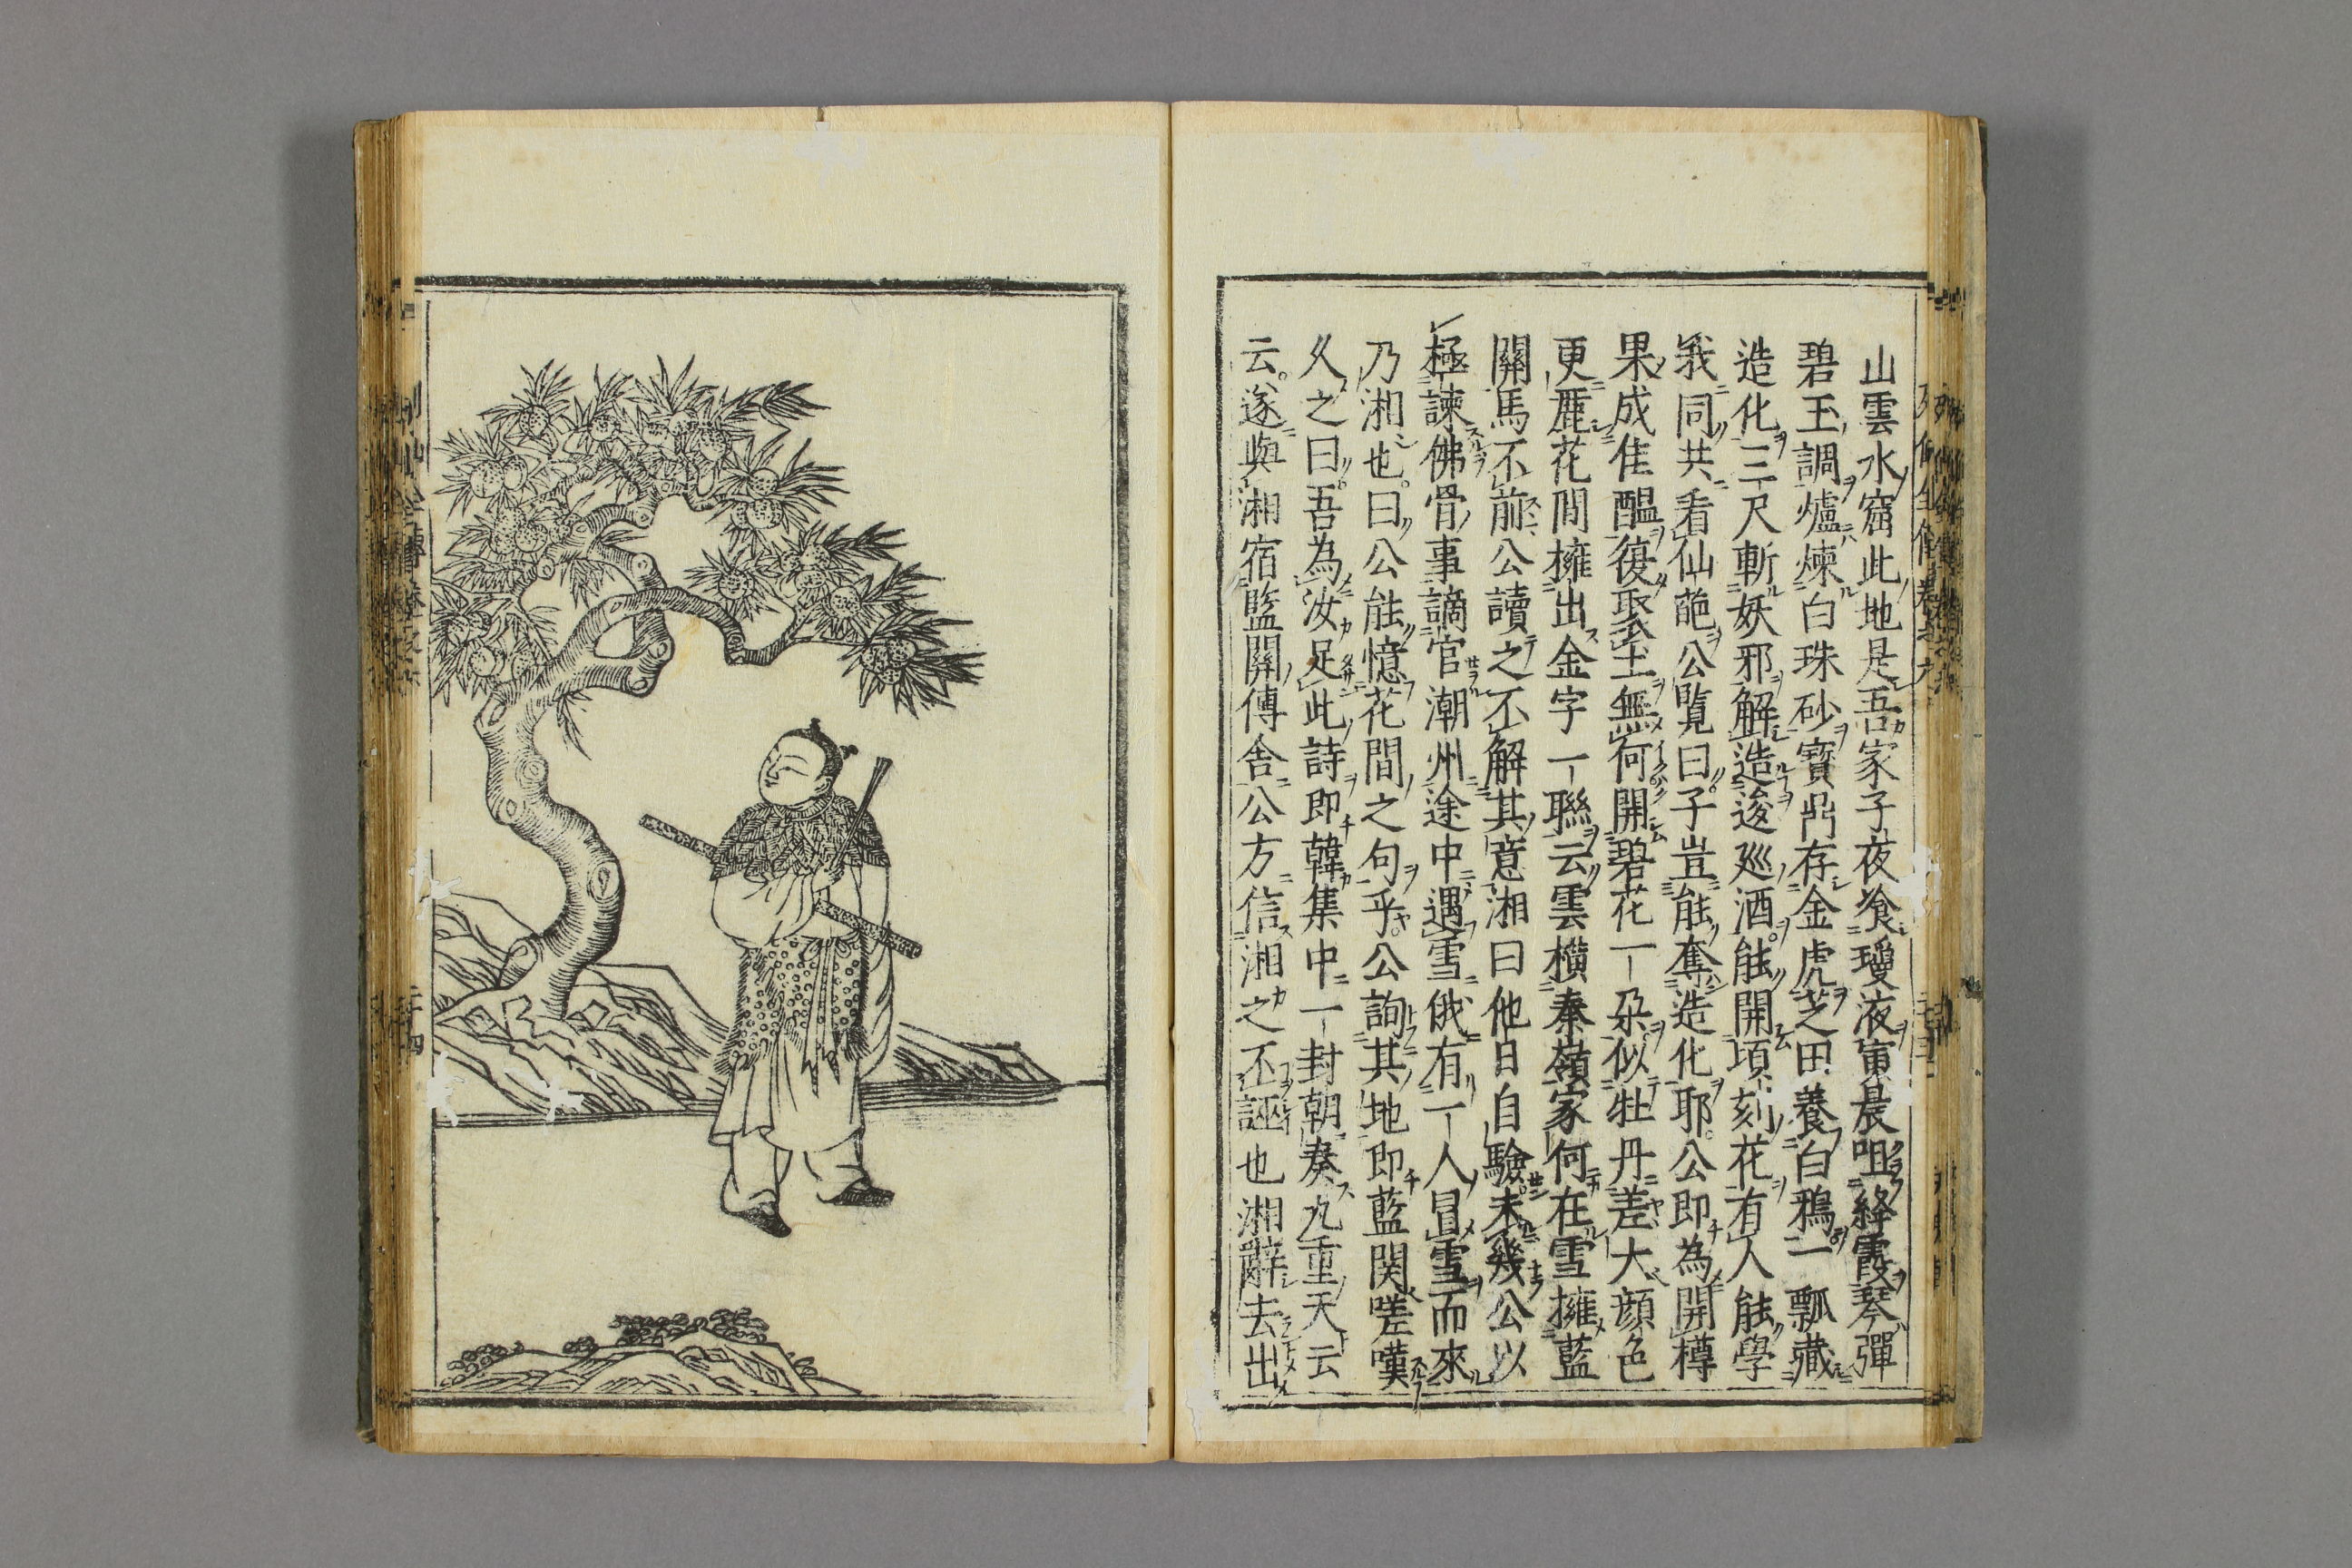 山雲水窟此地是吾家子夜飡瓊液寅晨咀絳霞琴彈
碧玉調爐煉白珠砂寳鼎存金虎芝田養白鴉一瓢藏
造化三尺斬妖邪解造逡廵酒能開頃刻花有人能學
我同共看仙葩公覽曰子豈能奪造化耶公即為開樽
果成佳醞復聚土無何開碧花一朶似牡丹差大顔色
更麗花間擁出金字一聯云雲横秦嶺家何在雪擁藍
關馬不前公讀之不解其意湘曰他日自驗未幾公以
極諫佛骨事謫官潮州途中遇雪俄有一人冒雪而來
乃湘也曰公能憶花間之句乎公詢其地即藍関嗟嘆
久之曰吾為汝足此詩即韓集中一封朝奏九重天云
云遂與湘宿藍關傳舍公方信湘之不誣也湘辭去出